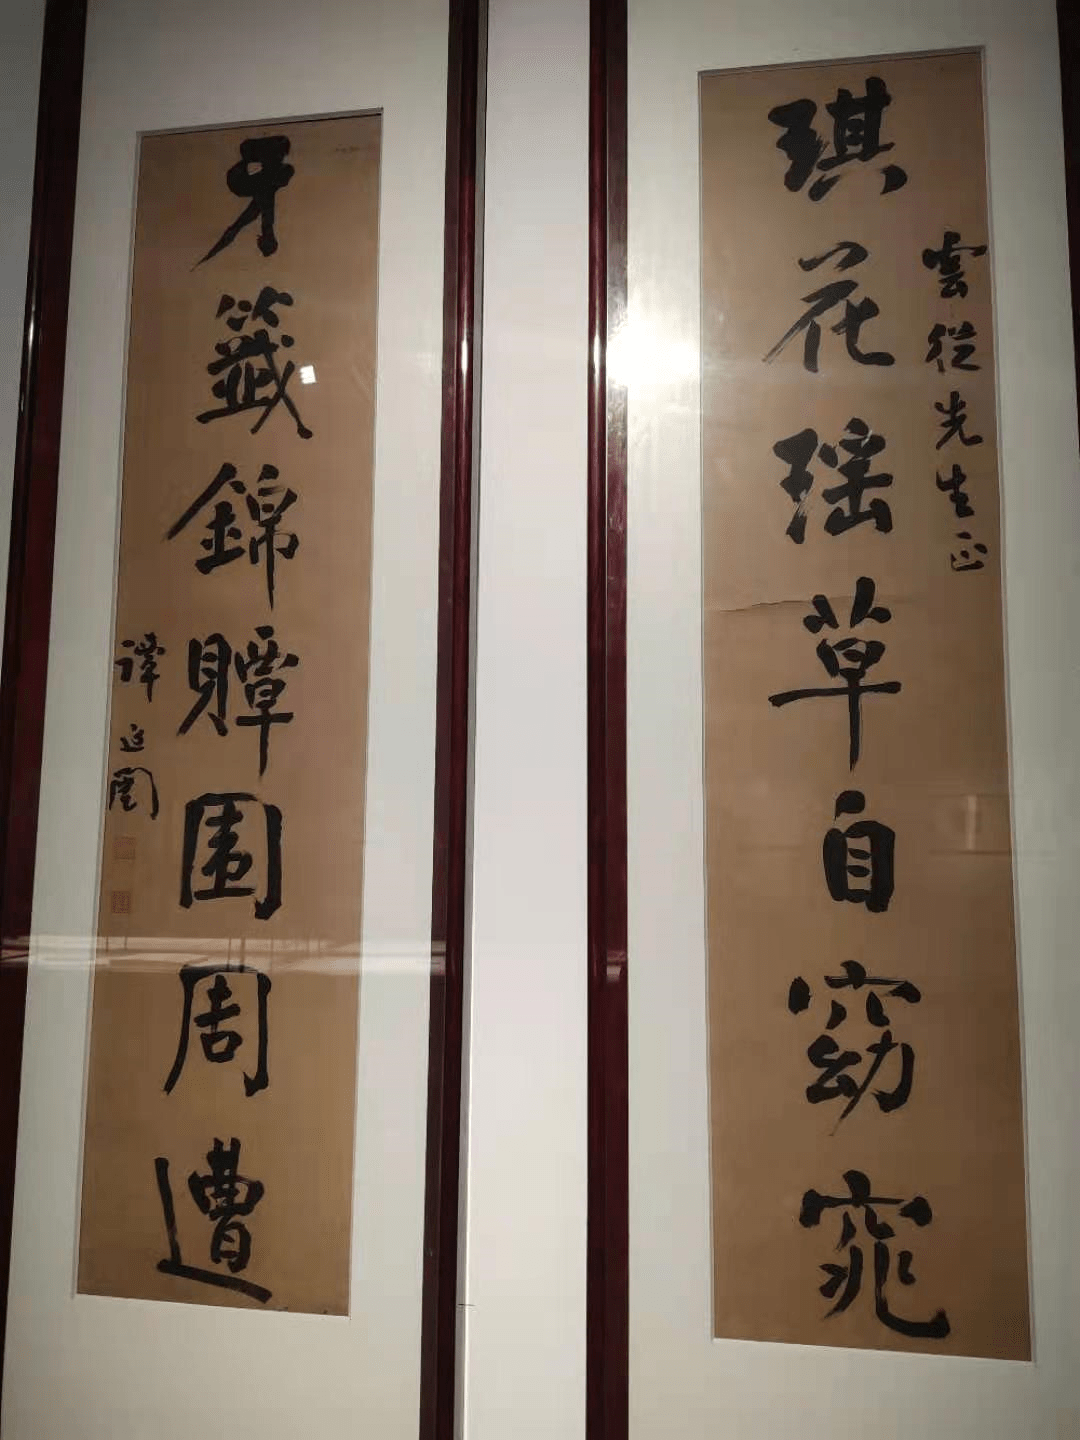 琪花瑶草自窈窕
雲從先生正
牙籤錦贉圍周遭
譚延闓